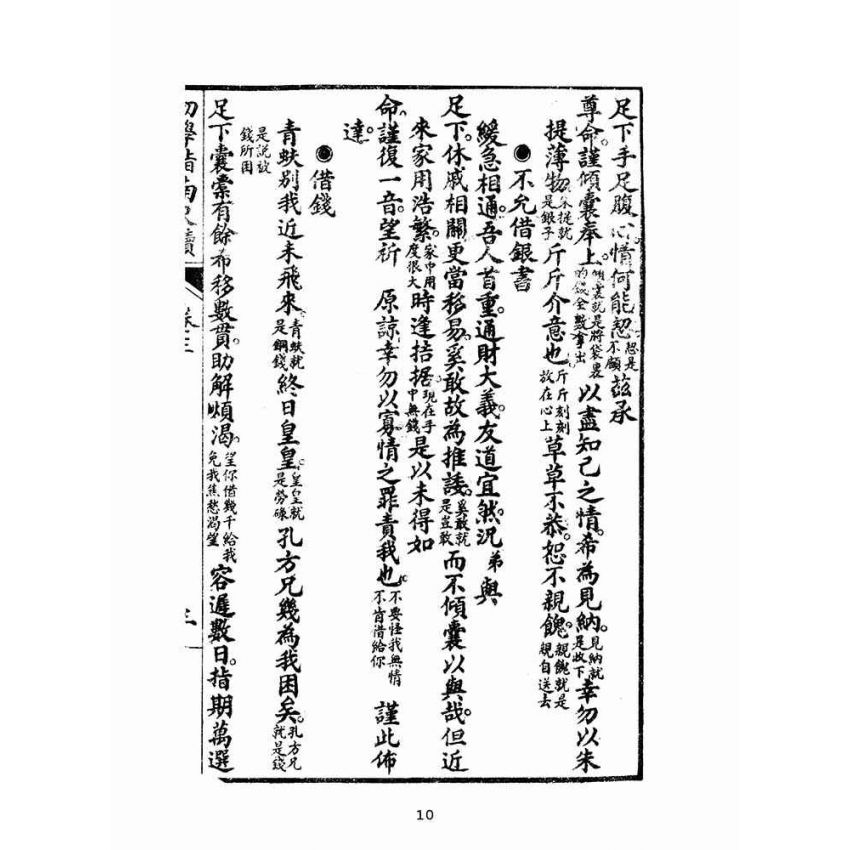 足下手足腹心情何能恝恝是不顧茲承
尊命。謹傾囊奉上。傾囊就是將袋裏的銀全數拿出以盡知己之情。希為見納。見納就是收下幸勿以朱
提薄物朱提就是銀子斤斤介意也斤斤刻刻放在心上草草不恭。恕不親餽。親餽就是親自送去
●不允借銀書
緩急相通。吾人首重。通財大義。友道宜然。況弟與
足下。休戚相關。更當移易。奚敢故為推諉。奚敢就是豈敢而不傾囊以與哉。但近
來家用浩繁。家中用度很大時逢拮据現在手中無錢是以未得如
命。謹復一音。望祈 原諒。幸勿以寡情之罪責我也。不要怪我無情不肯借給你 謹此佈
達。
●借錢
青蚨別我近未飛來。青蚨就是銅錢終日皇皇。皇皇就是勞碌孔方兄幾為我困矣。孔方兄就是錢
是說被錢所困
足下囊橐有餘。希移數貫。助解煩渴。望你借幾千給我免我焦愁渴望容遲數日。指期萬選
初學指南尺牘
卷三
三
10